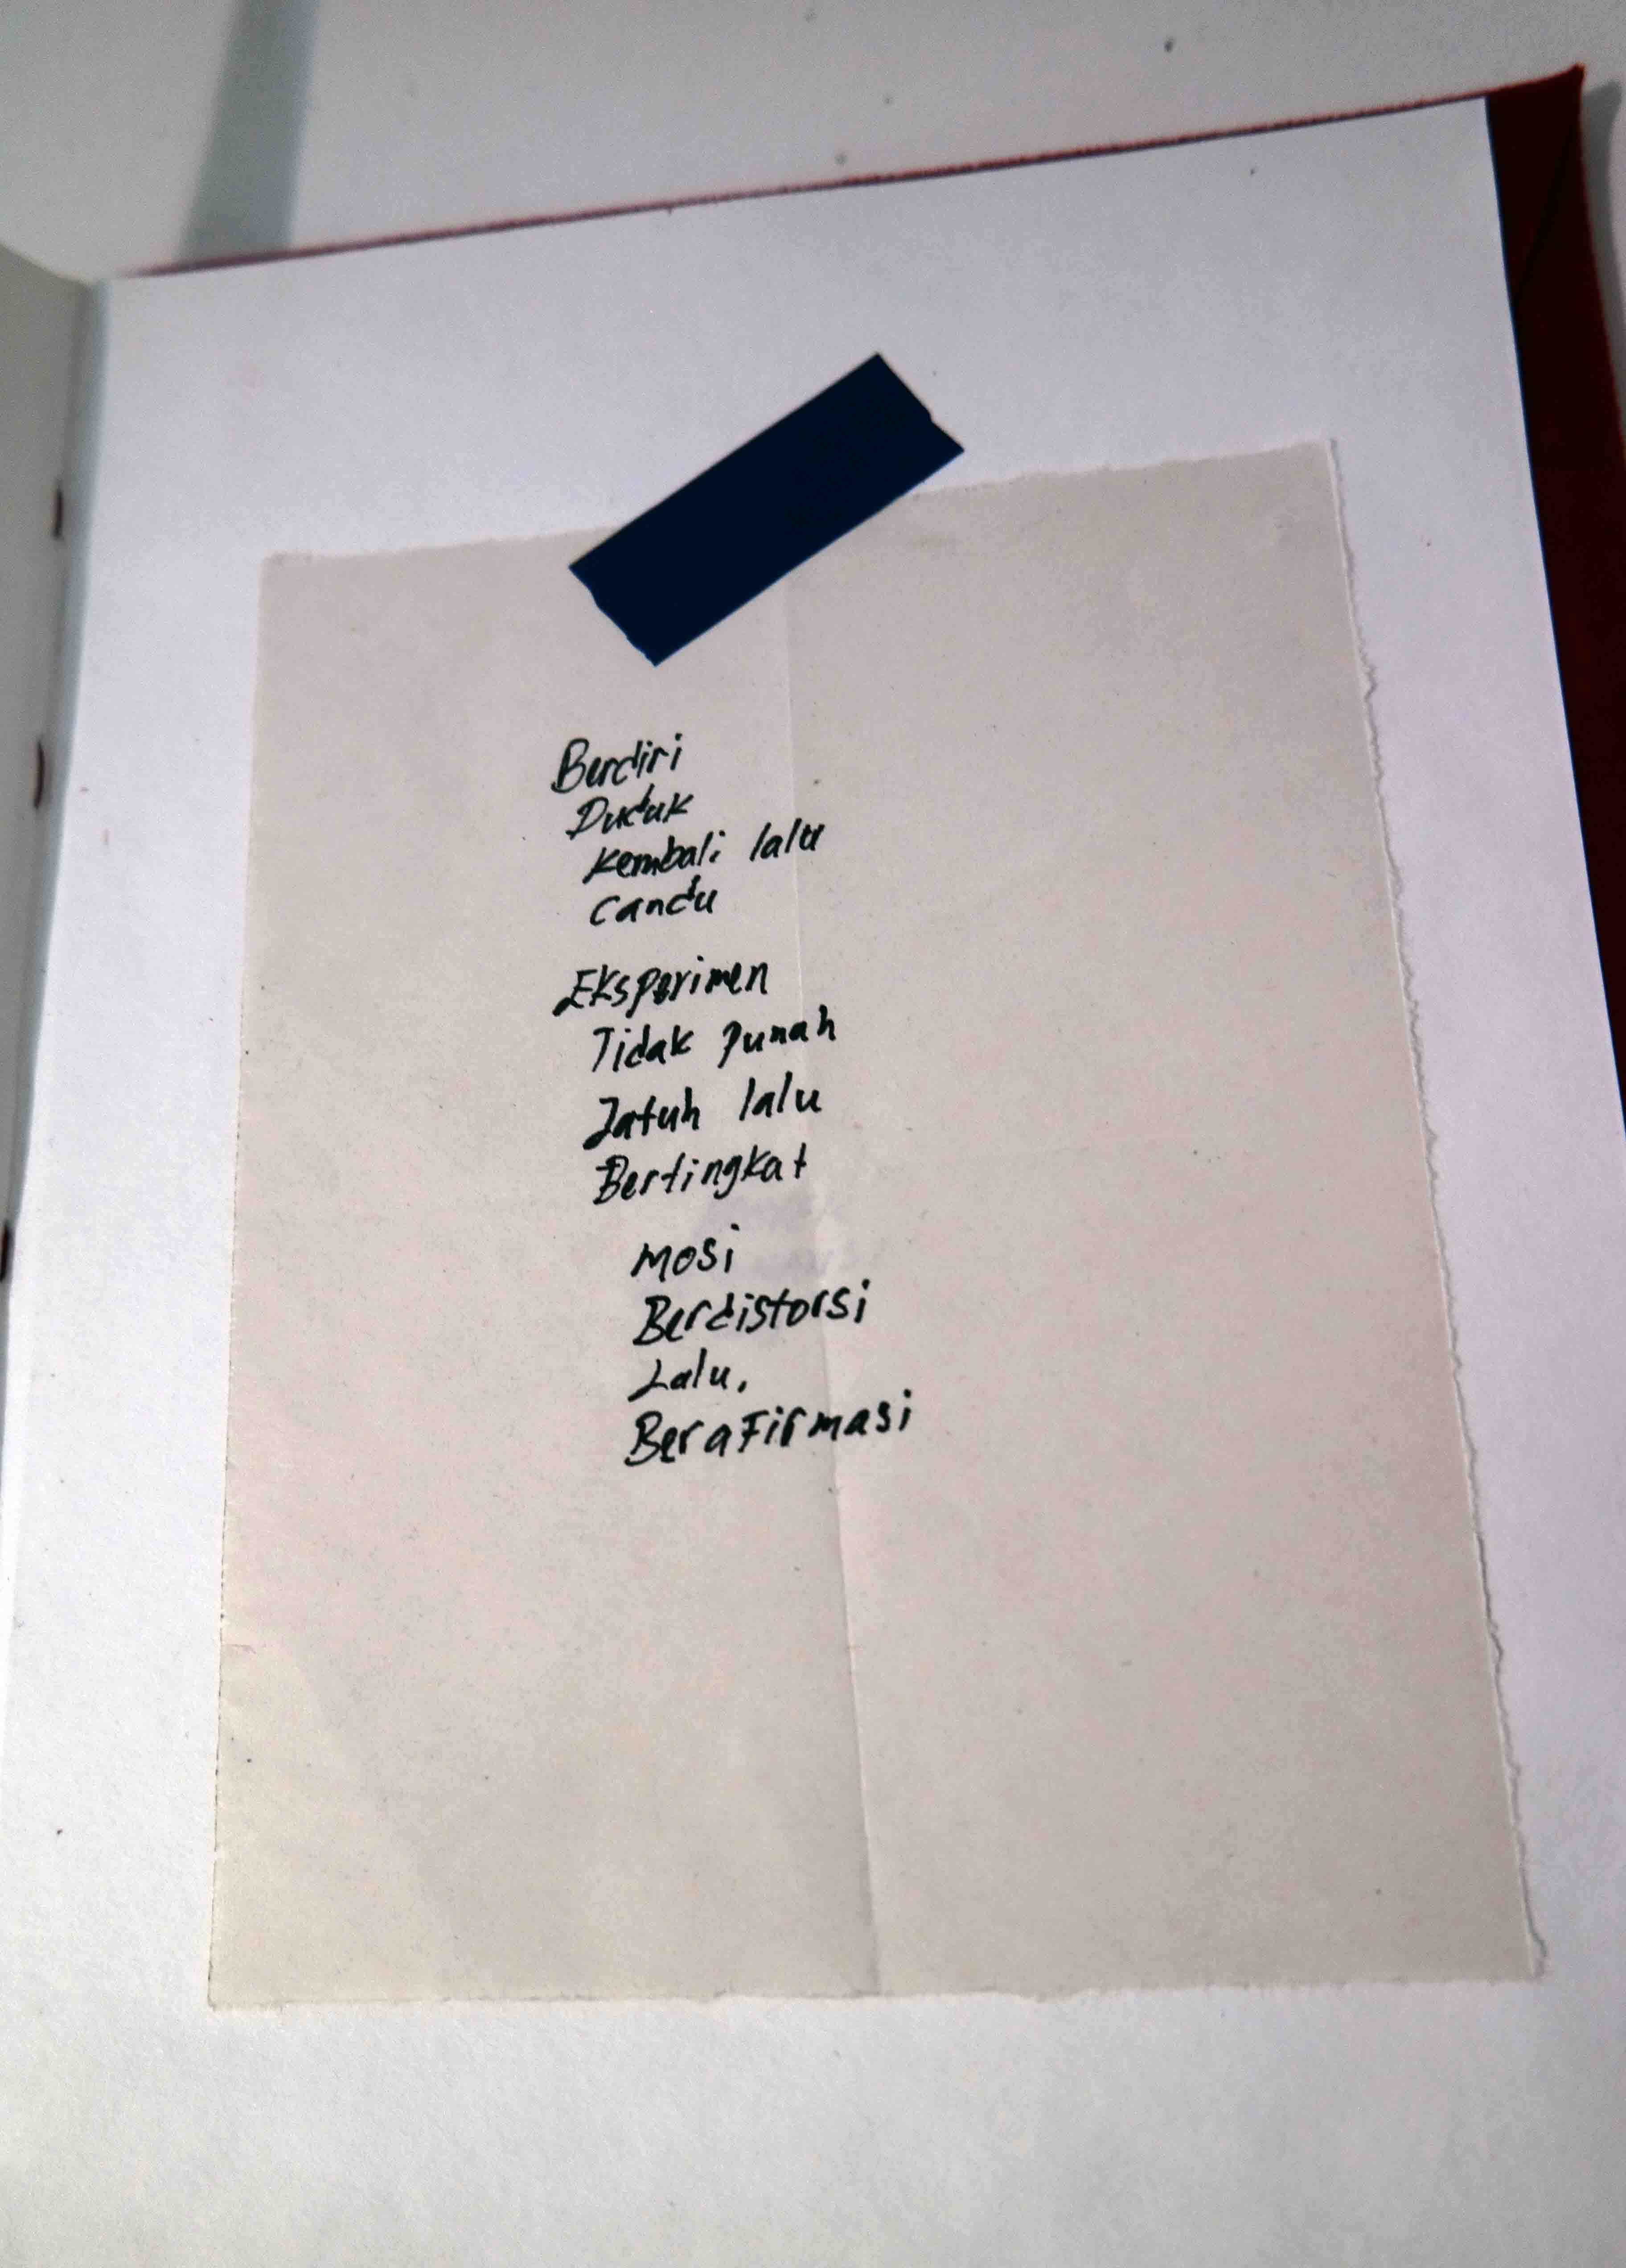 Berdiri
Duduk
Kembali lalu
Candu
Eksperimen
Tidak punah
Jatuh lalu
Bertingkat
mosi
Berdistorsi
Lalu,
BeraFirmasi